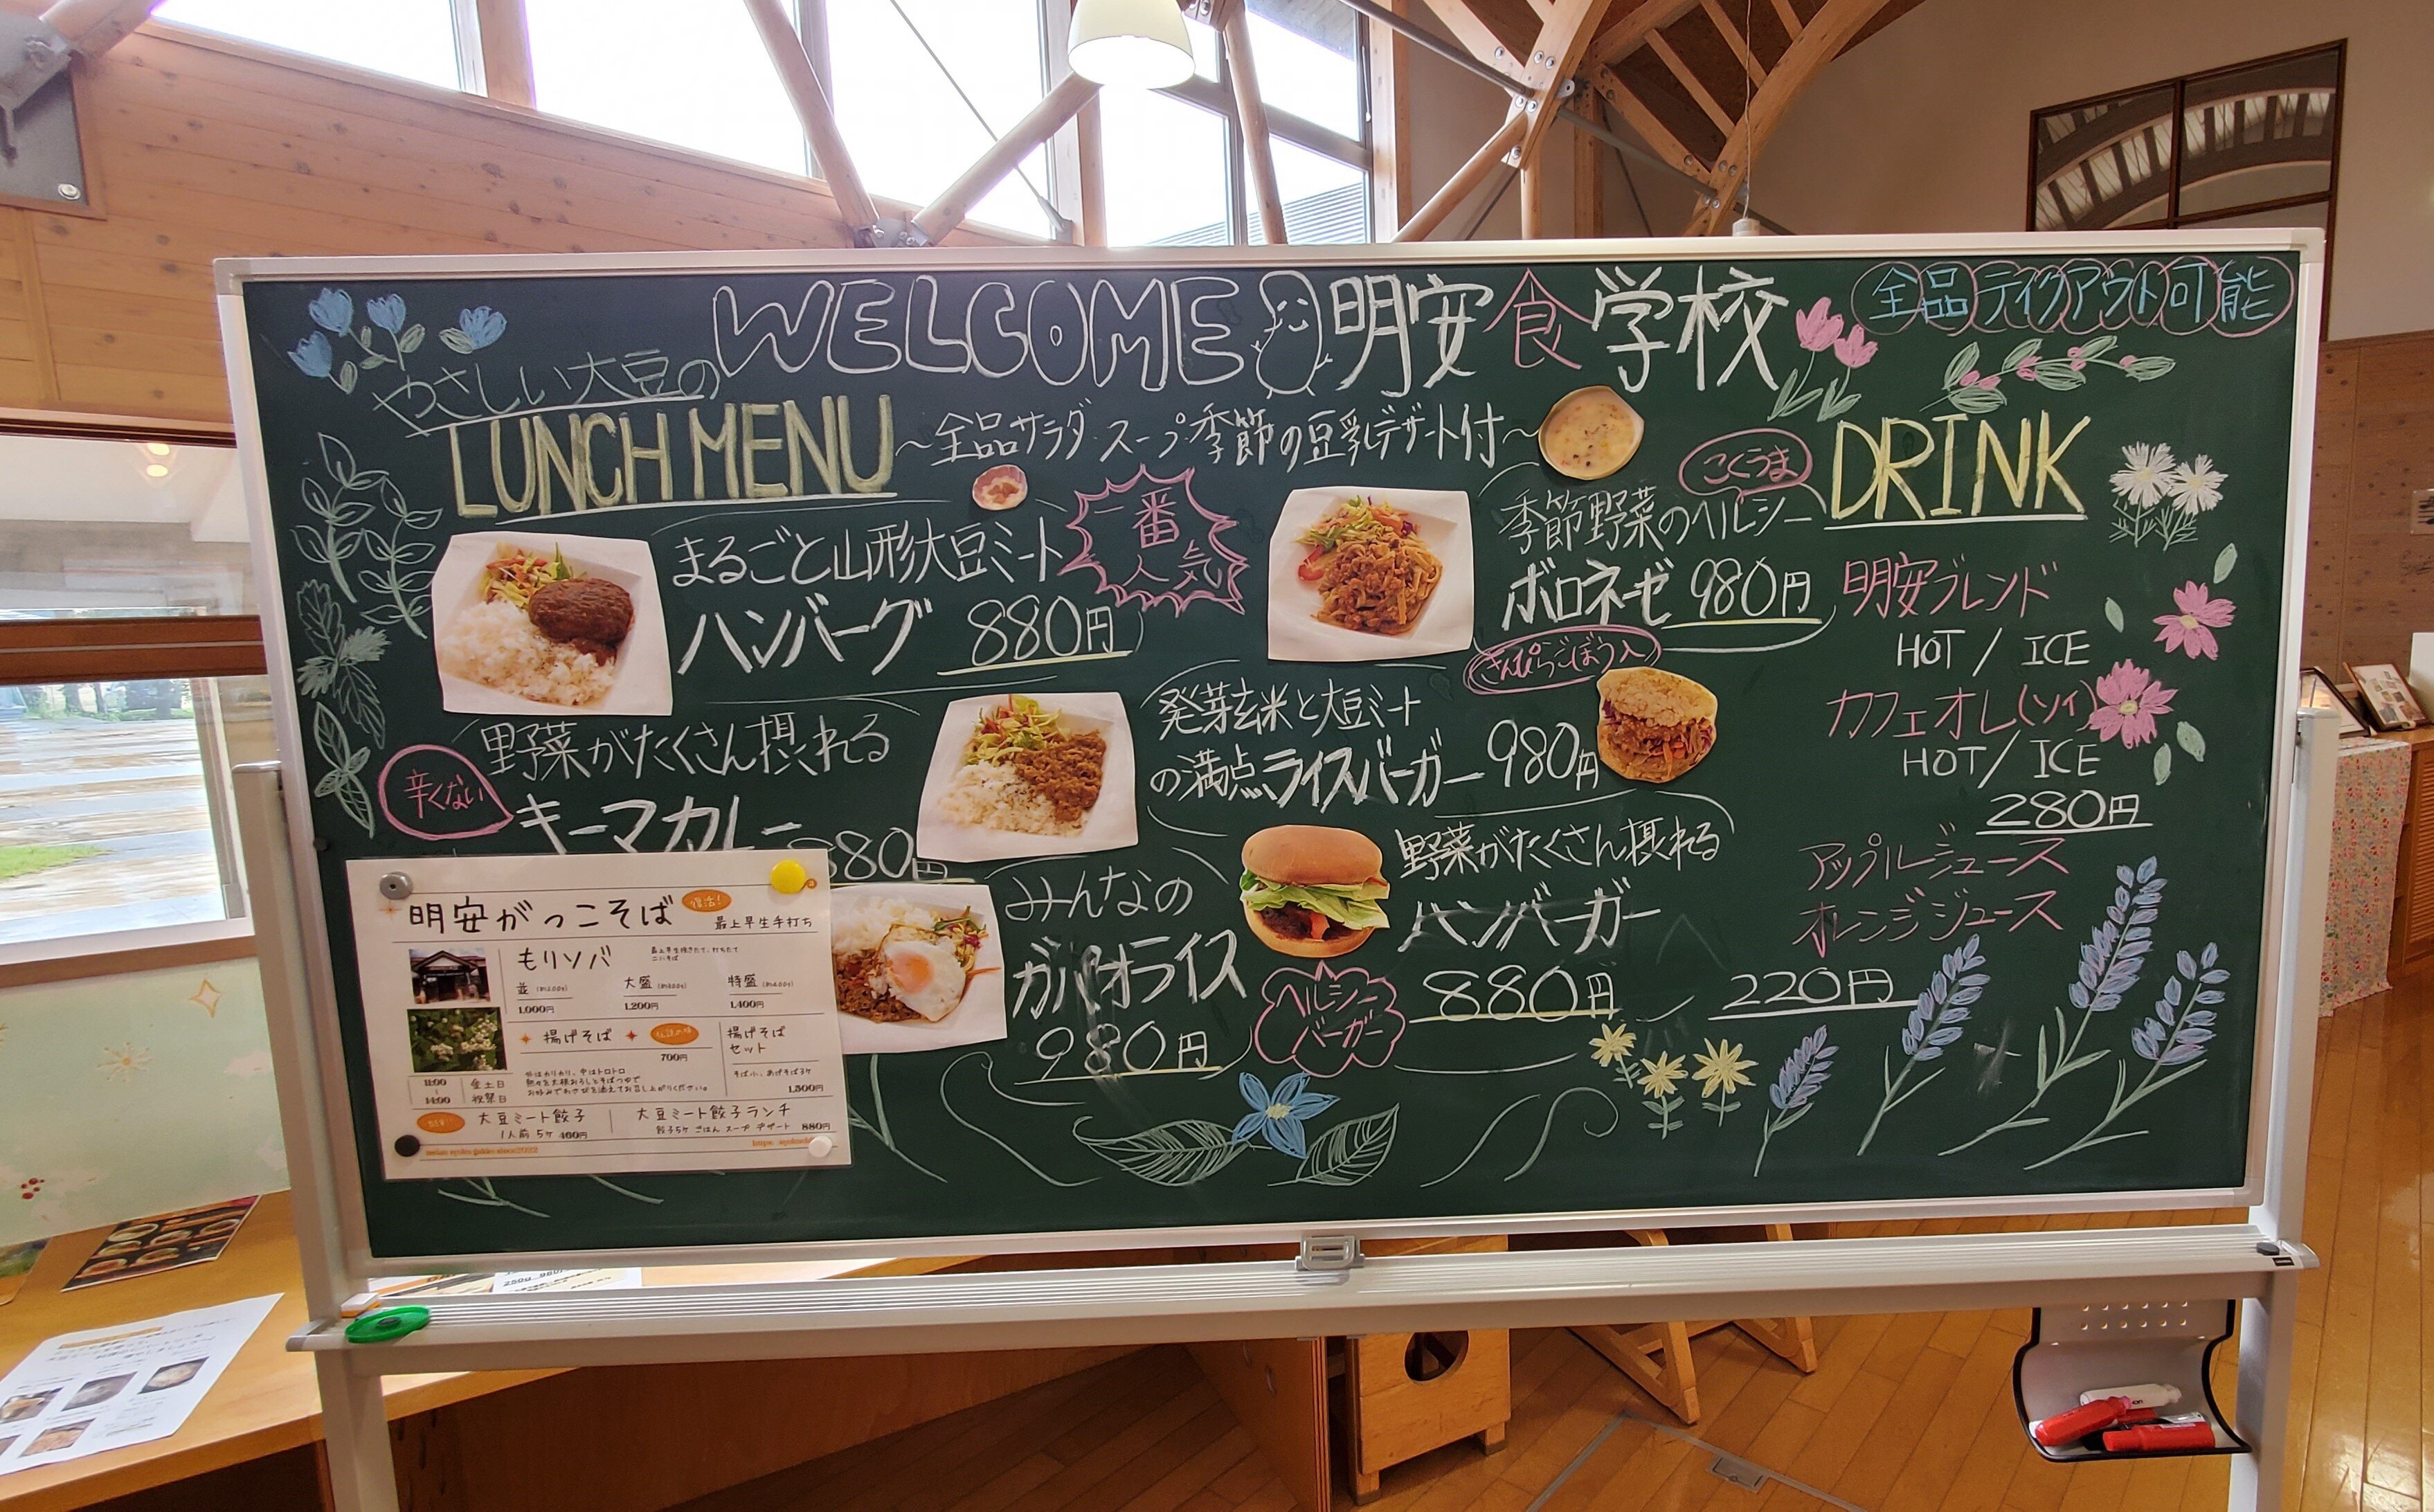 WELCOME 明安食学校
全品テイクアウト可能
やさしい大豆の
LUNCH MENU
～全品サラダ・スープ・季節の豆乳デザート付～
まるごと山形大豆ミート
ハンバーグ 880円
一番
人気
野菜がたくさん摂れる
キーマカレー
80円
辛くない
みんなの
ガパオライス
980円
こくうま
季節野菜のヘルシー
ボロネーゼ 980円
きんぴらごぼう入
発芽玄米と大豆ミート
の満点ライスバーガー 980円
野菜がたくさん摂れる
ハンバーガー
880円
ヘルシー
バーガー
DRINK
明安ブレンド
HOT / ICE
カフェオレ(ソイ)
HOT / ICE
280円
アップルジュース
オレンジジュース
220円
明安がっこそば
復活!
最上早生手打ち
もりソバ
並 大盛 特盛
1,000円 1,200円 1,400円
揚げそば
700円
外はカリカリ、中はトロトロ
揚げそば
セット
1,500円
11:00
14:00
金土日
祝祭日
大豆ミート餃子
1人前 5ヶ 400円
大豆ミート餃子ランチ
餃子5ヶ ごはん スープ デザート 880円